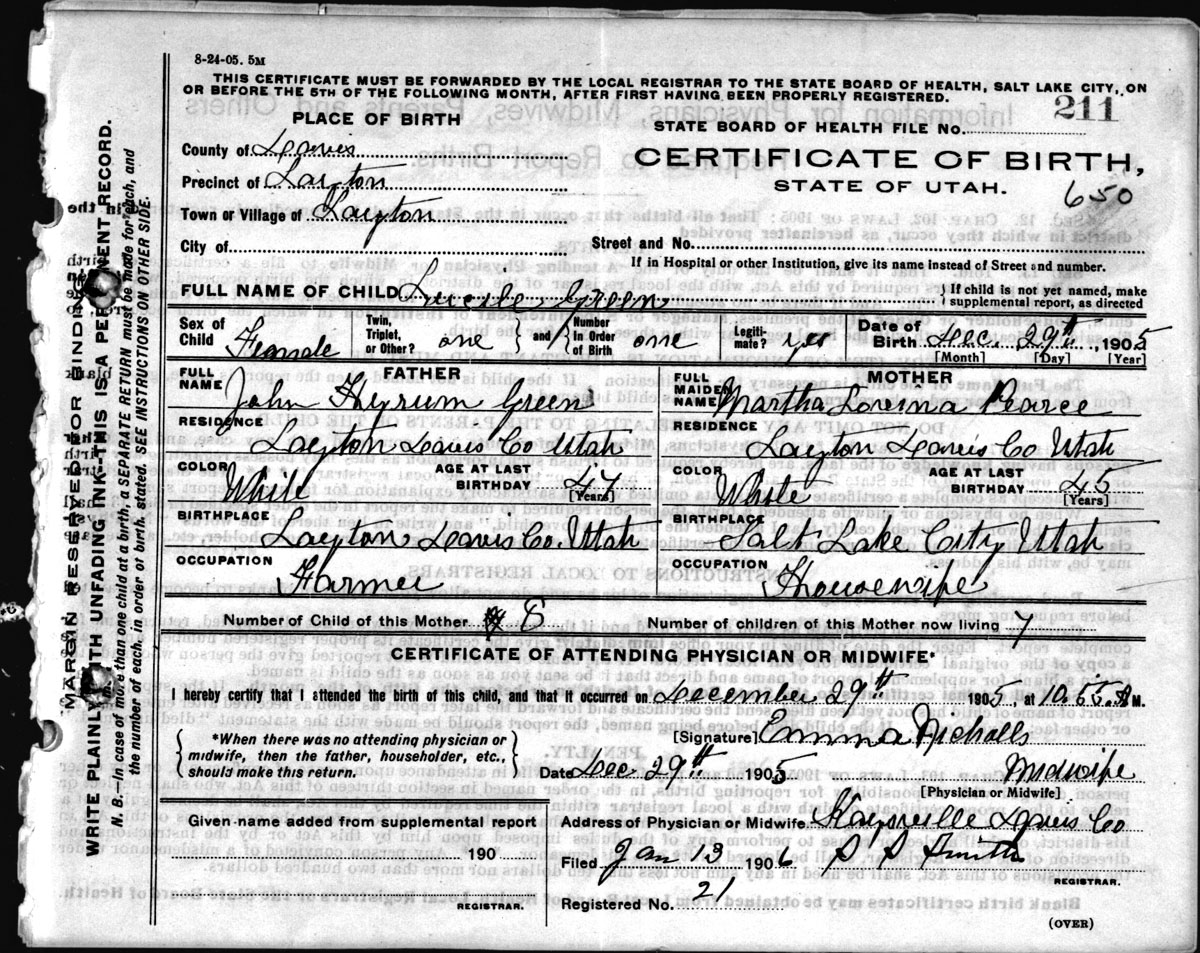 8-24-05. 5M
THIS CERTIFICATE MUST BE FORWARDED BY THE LOCAL REGISTRAR TO THE STATE BOARD OF HEALTH, SALT LAKE CITY, ON
OR BEFORE THE 5TH OF THE FOLLOWING MONTH, AFTER FIRST HAVING BEEN PROPERLY REGISTERED.
PLACE OF BIRTH
County of Davis
Precinct of Layton
Town or Village of Layton
City of
STATE BOARD OF HEALTH FILE No. 211
CERTIFICATE OF BIRTH,
STATE OF UTAH.
650
Street and No.
If in Hospital or other Institution, give its name instead of Street and number.
FULL NAME OF CHILD Lucile Green } If child is not yet named, make
supplemental report, as directed
Sex of Child Female Twin, Triplet, or Other? one { and } Number in Order of Birth one Legitimate? yes Date of Birth Dec. 29th, 1905
[Month] [Day] [Year]
FATHER
FULL NAME John Hyrum Green
RESIDENCE Layton Davis Co Utah
COLOR White AGE AT LAST BIRTHDAY 47
[Years]
BIRTHPLACE Layton, Davis Co. Utah
OCCUPATION Farmer
MOTHER
FULL MAIDEN NAME Martha Pearce
RESIDENCE Layton Davis Co Utah
COLOR White AGE AT LAST BIRTHDAY 45
[Years]
BIRTHPLACE Salt Lake City Utah
OCCUPATION Housewife
Number of Child of this Mother 8 Number of children of this Mother now living 7
CERTIFICATE OF ATTENDING PHYSICIAN OR MIDWIFE*
I hereby certify that I attended the birth of this child, and that it occurred on December 29th 1905, at 10.55. M.
{ *When there was no attending physician or
midwife, then the father, householder, etc.,
should make this return. }
[Signature] Emma Nicholls
Date Dec 29th 1905 Midwife
[Physician or Midwife]
Given name added from supplemental report
190
REGISTRAR.
Address of Physician or Midwife Kaysville Davis Co
Filed Jan 13 1906 S S Smith
REGISTRAR.
Registered No. 21
(OVER)
MARGIN RESERVED FOR BINDING.
WRITE PLAINLY WITH UNFADING INK—THIS IS A PERMANENT RECORD.
N. B.—In case of more than one child at a birth, a SEPARATE RETURN must be made for each, and
the number of each, in order of birth, stated. SEE INSTRUCTIONS ON OTHER SIDE.